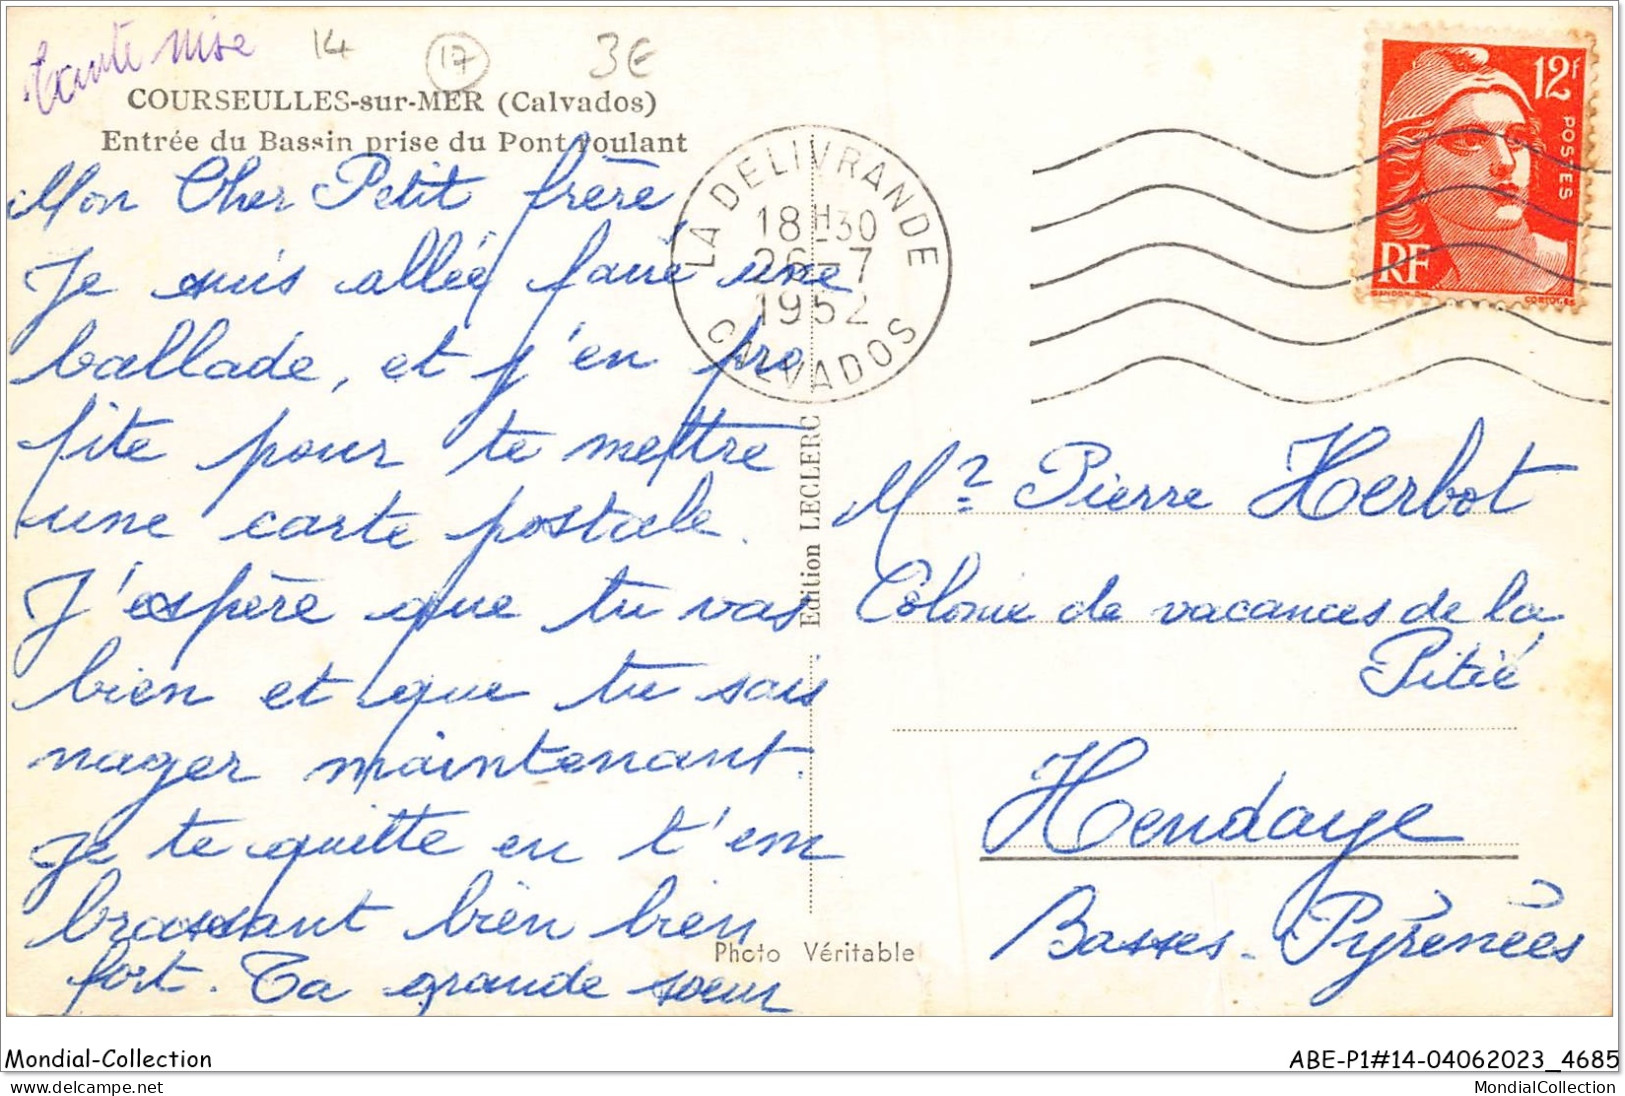 14 17 3€
COURSEULLES-sur-MER (Calvados)
Entrée du Bassin prise du Pont roulant
Mon Cher Petit frère
Je suis allée faire une
ballade, et j'en pro
fite pour te mettre
une carte postale.
J'espère que tu vas
bien et que tu sais
nager maintenant.
Je te quitte en t'em
brassant bien bien
fort. Ta grande sœur
LA DELIVRANDE
18H30
26-7
1952
CALVADOS
12f
POSTES
RF
GANDON
CORTOT.GS
Edition LECLERC
Photo Véritable
Mr Pierre Herbot
Colonie de vacances de la
Pitié
Hendaye
Basses-Pyrénées
Mondial-Collection
ABE-P1#14-04062023_4685
MondialCollection